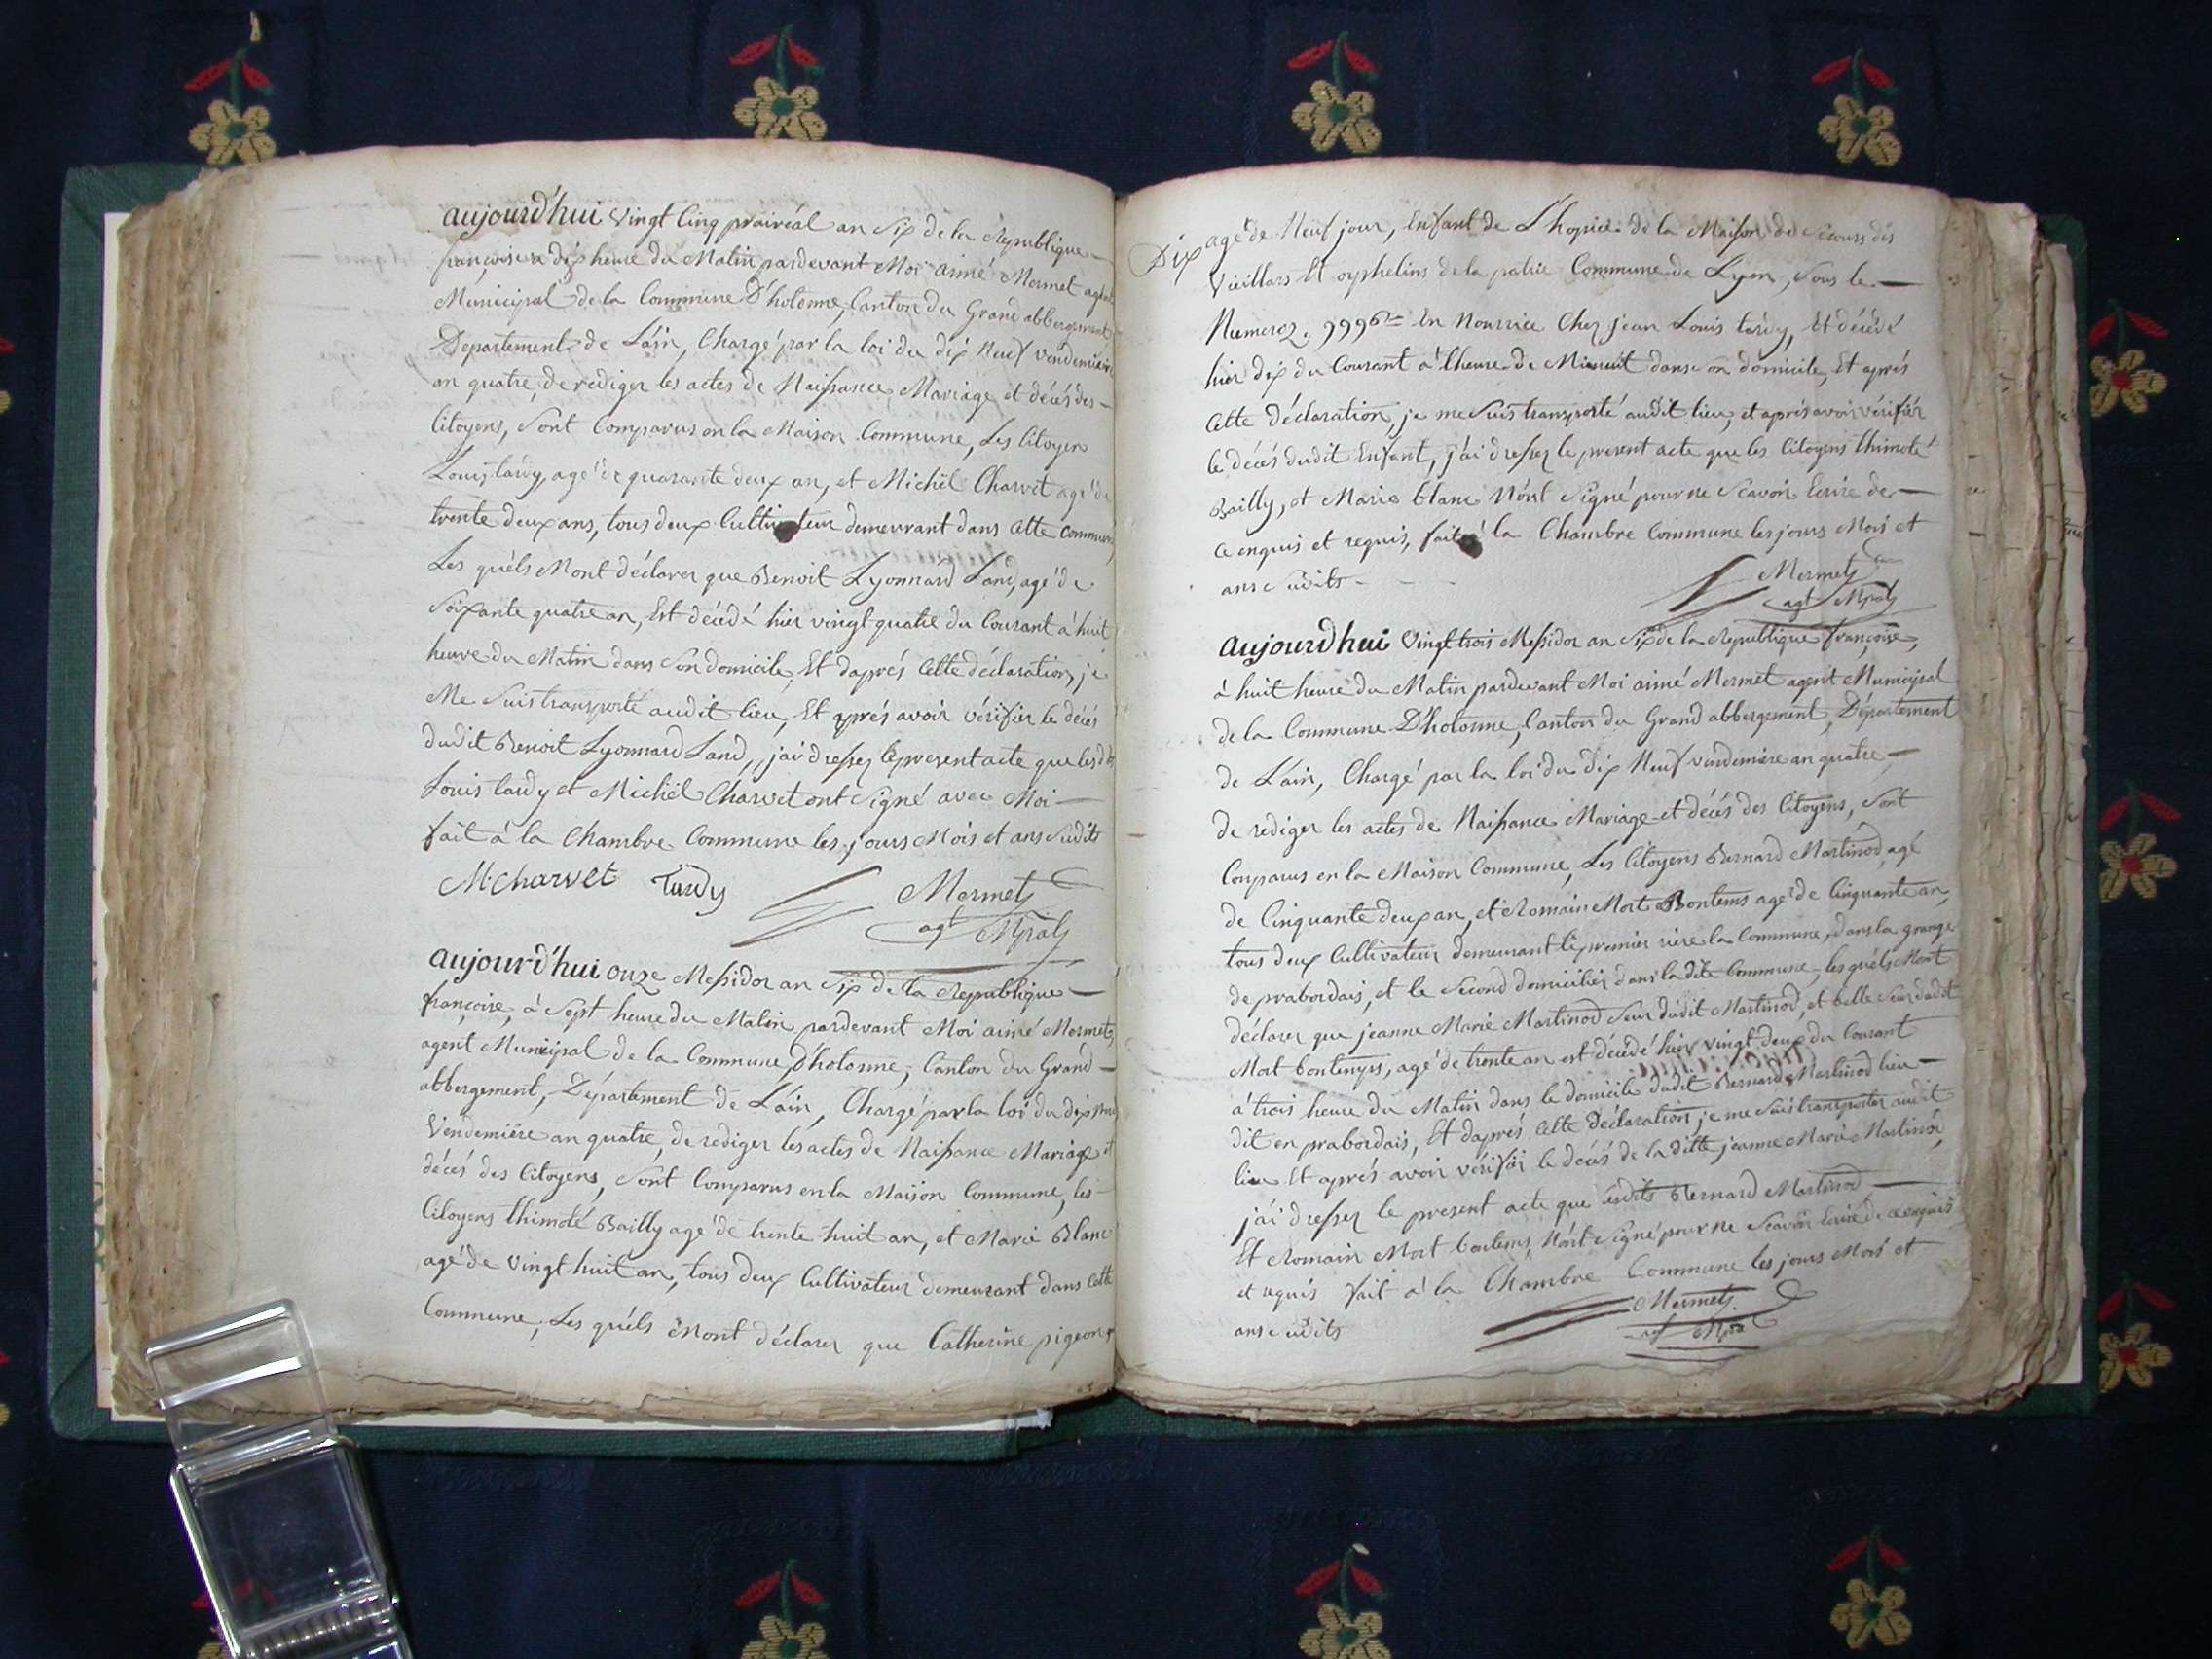 aujourd'hui vingt cinq prairéal an six de la République
françoise a dix heure du Matin pardevant Moi aimé Mermet agent
Municipal de la Commune D'hotonne, Canton du Grand abbergement
Département de L'ain, Chargé par la loi du dix Neuf vendemiaire
an quatre, de rediger les actes de Naissance Mariage et décés des
Citoyens, Sont Comparus en la Maison Commune, Les Citoyen
Louis tardy, agé de quarante deux an, et Michël Charvet agé de
trente deux ans, tous deux Cultivateur demeurrant dans Cette Commune,
Les quèls Mont déclarer que Benoit Lyonnard Land, agé de
Soixante quatre an, Est décédé hier vingt quatre du Courant à huit
heure du Matin dans Son domicile, Et daprés Cette déclaration, je
Me Suis transporté audit lieu, Et aprés avoir vérifier le décés
dudit Benoit Lyonnard Land, jai dresser le present acte que lesdits
Louis tardy et Michël Charvet ont Signé avec Moi
fait à la Chambre Commune les jours Mois et ans Susdits
M. Charvet Tardy Mermet
agt Mpal
aujourd'hui onze Messidor an Six de la Republique
françoise, à Sept heure du Matin pardevant Moi aimé Mermet,
agent Municipal de la Commune D'hotonne, Canton du Grand
abbergement, Département de L'ain, Chargé par la loi du dix Neuf
Vendemiére an quatre, de rediger les actes de Naissance Mariage et
décés des Citoyens, Sont Comparus en la Maison Commune, les
Citoyens thimoté Bailly agé de trente huit an, et Marie Blanc
agé de vingt huit an, tous deux Cultivateur demeurant dans Cette
Commune, Les quèls Mont déclarer que Catherine pigeon
Dix agé de Neuf jour, Enfant de L'hopice de la Maison de Secours des
Vieillars Et orphelins de la patrie Commune de Lyon, Sous le
Numeroz. 9996 En Nourrice Chez jean Louis tardy, Et décédé
hier dix du Courant à lheure de Minuit dans on domicile, Et aprés
Cette déclaration, je me Suis transporté audit lieu, et aprés avoir vérifier
le décés dudit Enfant, j'ai dresser le present acte que les Citoyens thimoté
Bailly, et Marie blanc Nònt Signé pour ne Scavoir Ecrire de
ce enquis et requis, fait à la Chambre Commune les jours Mois et
ans Susdits
Mermet
agt Mpal
Aujourdhui Vingt trois Messidor an Six de la République françoise,
à huit heure du Matin pardevant Moi aimé Mermet agent Municipal
de la Commune D'hotonne, Canton du Grand abbergement, Département
de L'ain, Chargé par la loi du dix Neuf vendemiere an quatre
de rediger les actes de Naissance Mariage et décés des Citoyens, Sont
Comparus en la Maison Commune, Les Citoyens Bernard Martinod, agé
de Cinquante deux an, et Romain Mort Bontems agé de Cinquante an,
tous deux Cultivateur demeurant le premier riere la Commune, dans la grange
de prabordais, et le Second domicilier dans la dite Commune, les quèls Mont
déclarer que jeanne Marie Martinod Seur dudit Martinod, et belle Seur dudit
Mort bontemps, agé de trente an est décédé hier vingt deux du Courant
à trois heure du Matin dans le domicile dudit Bernard Martinod lieu
dit en prabordais, Et daprés Cette Déclaration, je me Suis transporter audit
lieu Et aprés avoir vérifier le décés de la ditte jeanne Marie Martinod,
j'ai dresser le present acte que lesdits Bernard Martinod
Et Romain Mort bontems, Nònt Signé pour ne Scavoir Ecrire de ce enquis
et requis fait à la Chambre Commune les jours Mois et
ans Susdits
Mermet
agt Mpal